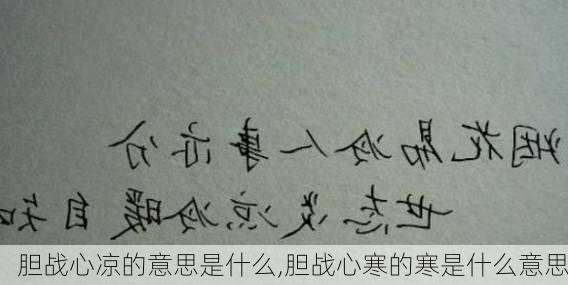 烟花易冷人事亦分
世态炎凉冷暖自知
胆战心凉的意思是什么,胆战心寒的寒是什么意思